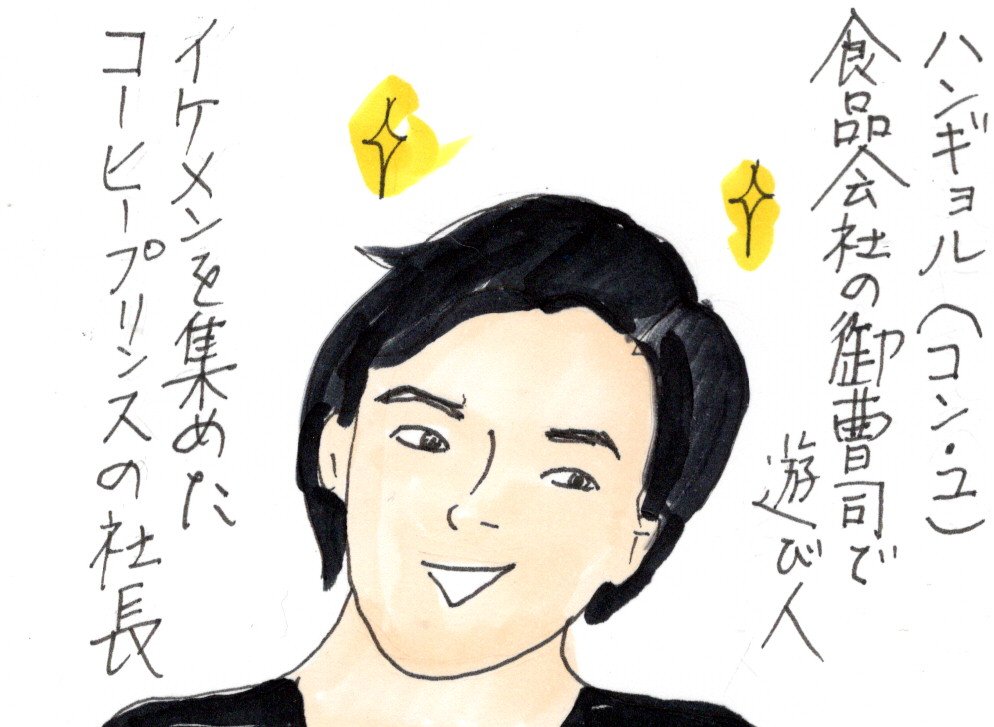 ハンギョル(コン・ユ)
食品会社の御曹司で
遊び人
イケメンを集めた
コーヒープリンスの社長